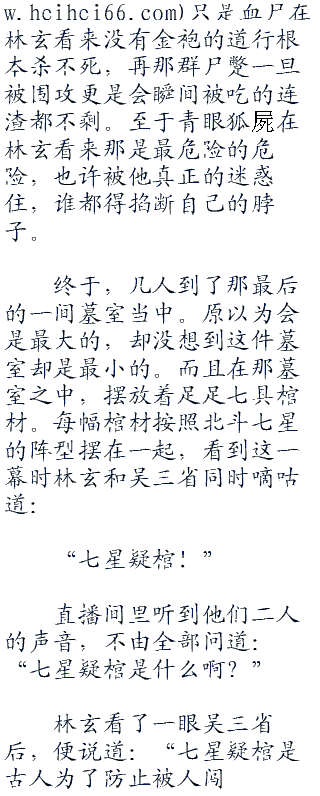 w.hcihci66.com)只是血尸在
林玄看来没有金袍的道行根
本杀不死，再那群尸蹩一旦
被围攻更是会瞬间被吃的连
渣都不剩。至于青眼狐屍在
林玄看来那是最危险的危
险，也许被他真正的迷惑
住，谁都得掐断自己的脖
子。
终于，几人到了那最后
的一间墓室当中。原以为会
是最大的，却没想到这件墓
室却是最小的。而且在那墓
室之中，摆放着足足七具棺
材。每幅棺材按照北斗七星
的阵型摆在一起，看到这一
幕时林玄和吴三省同时嘀咕
道：
“七星疑棺！”
直播间里听到他们二人
的声音，不由全部问道：
“七星疑棺是什么啊？”
林玄看了一眼吴三省
后，便说道：“七星疑棺是
古人为了防止被人闯